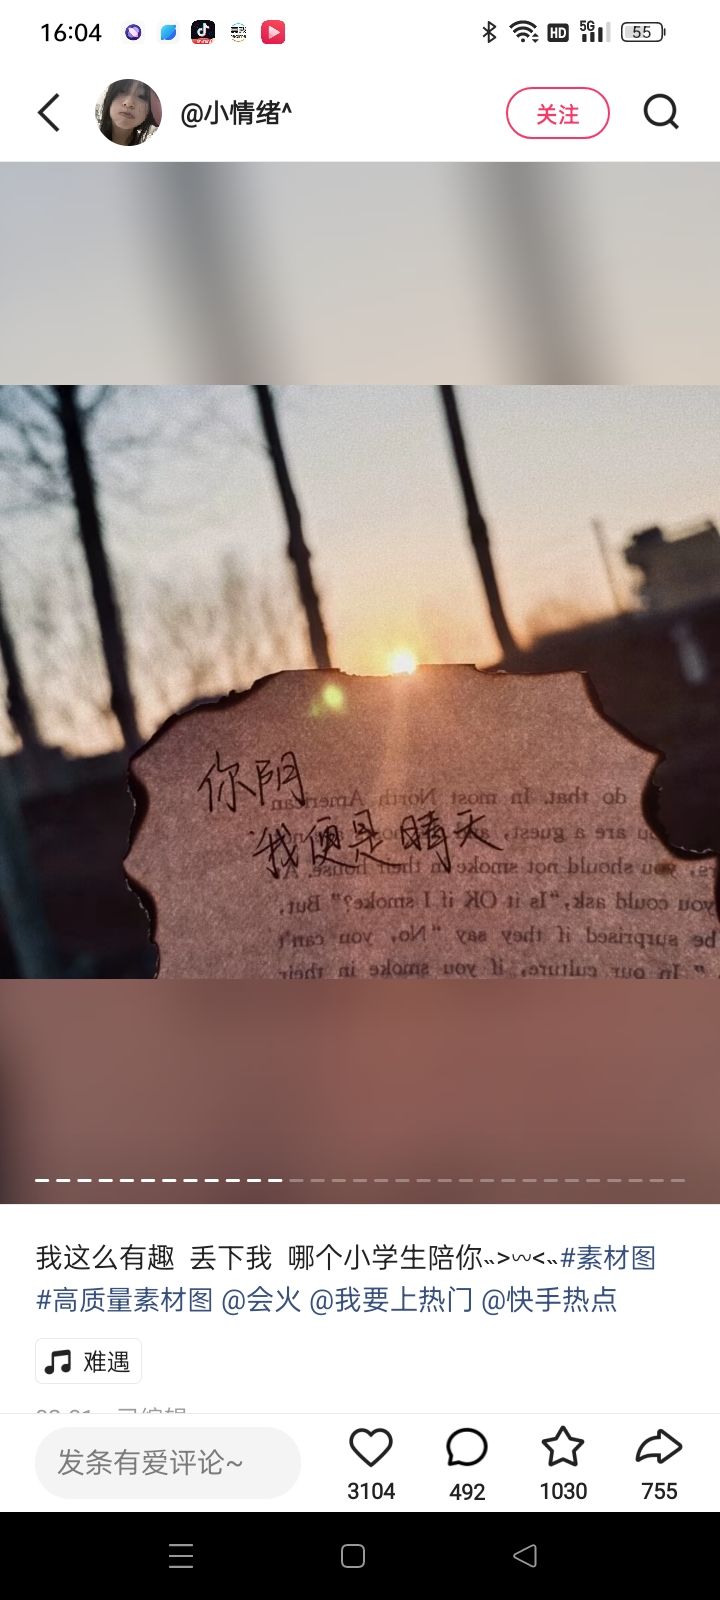 16:04
HD 5G 55
@小情绪^
关注
你阴
我便是晴天
do that. In most North American
should not smoke in their house.
you could ask, "Is it OK if I smoke?" But,
be surprised if they say "No, you can't
" In our culture, if you smoke in their
我这么有趣 丢下我 哪个小学生陪你˶>〰<˶#素材图
#高质量素材图 @会火 @我要上热门 @快手热点
难遇
发条有爱评论~
3104
492
1030
755